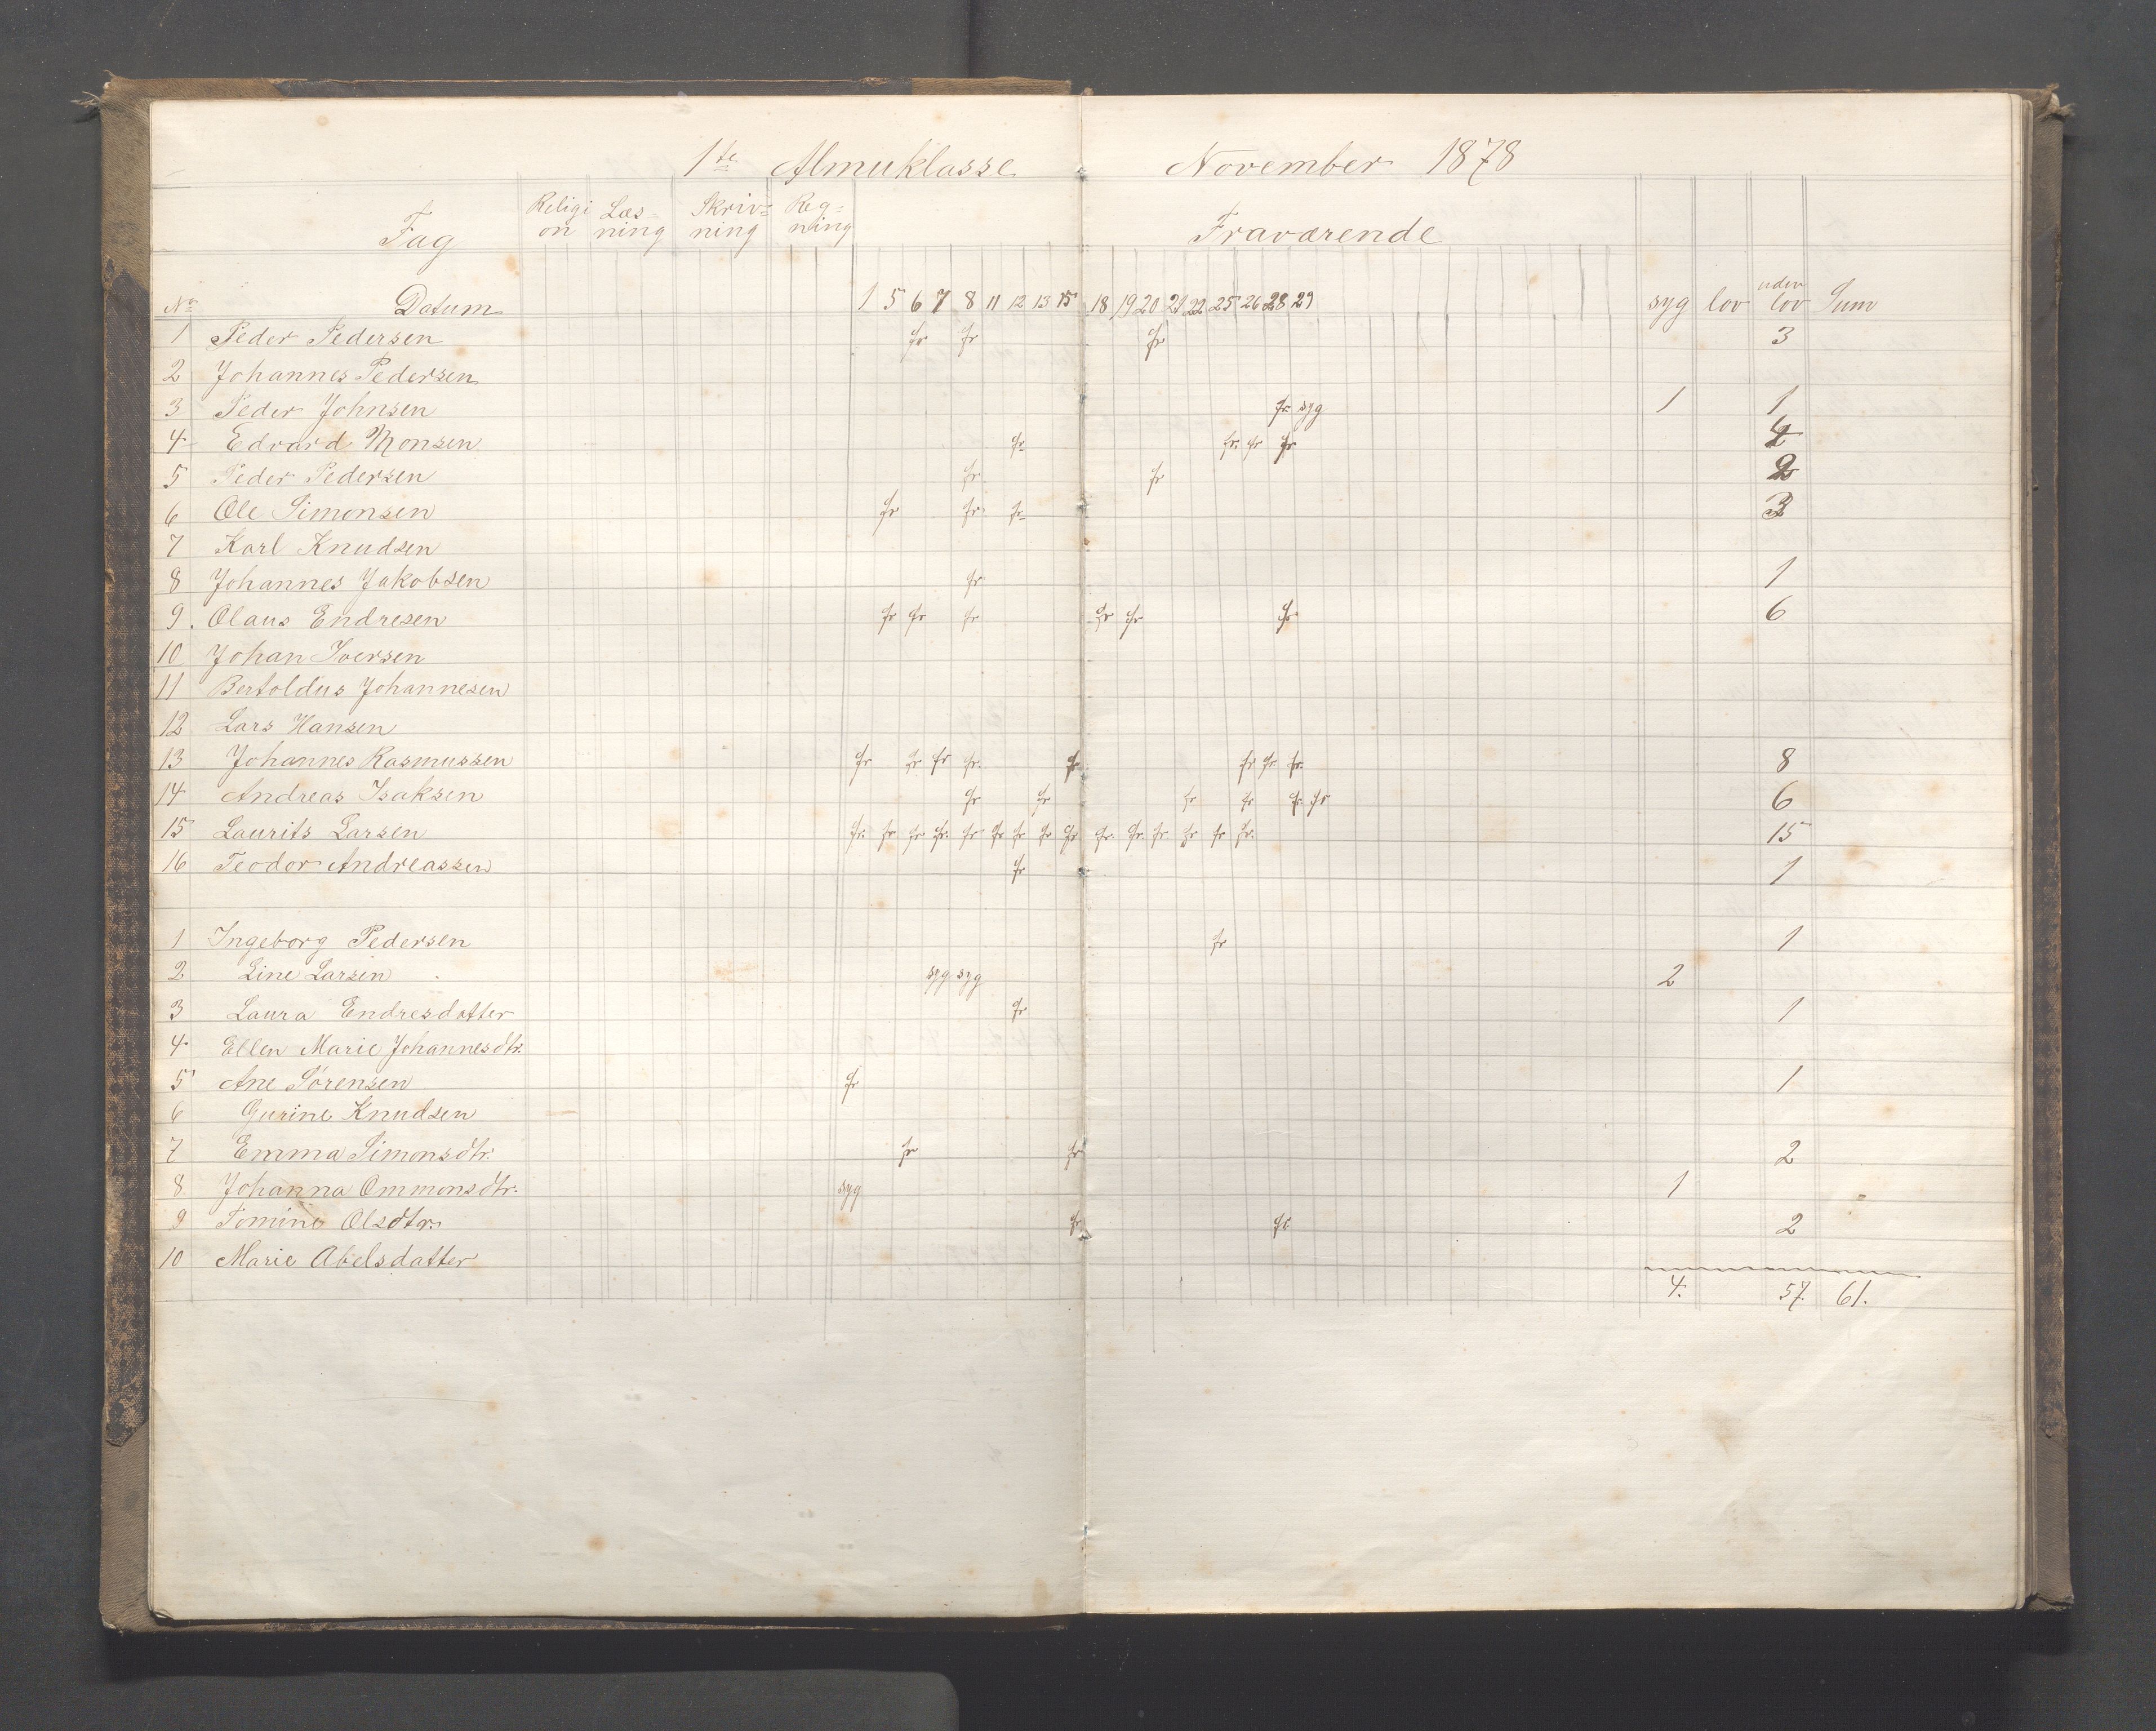 1te Almuklasse November 1878
Fag Religion Læsning Skrivning Regning Fraværende
No Datum 1 5 6 7 8 11 12 13 15 18 19 20 21 22 25 26 28 29 syg lov uden lov Sum
1 Peder Pedersen fr fr fr 3
2 Johannes Pedersen
3 Peder Johnsen fr syg 1 1
4 Edvard Monsen fr fr. fr fr 4
5 Peder Pedersen fr. fr 2
6 Ole Simonsen fr fr. fr 3
7 Karl Knudsen
8 Johannes Jakobsen fr 1
9. Olaus Endresen fr fr fr fr fr fr 6
10 Johan Iversen
11 Bertoldus Johannesen
12 Lars Hansen
13 Johannes Rasmussen fr fr fr fr. fr fr fr. fr. 8
14 Andreas Isaksen fr fr fr fr fr. fr 6
15 Laurits Larsen fr. fr fr fr. fr fr fr fr fr fr. fr. fr fr fr fr. 15
16 Teodor Andreassen fr 1
1 Ingeborg Pedersen fr 1
2 Line Larsen syg syg 2
3 Laura Endresdatter fr 1
4 Ellen Marie Johannesdtr.
5 Ane Sørensen fr 1
6 Gurine Knudsen
7 Emma Simonsdtr. fr fr 2
8 Johanna Ommonsdtr. syg 1
9 Tomine Olsdtr. fr fr 2
10 Marie Abelsdatter
4. 57. 61.